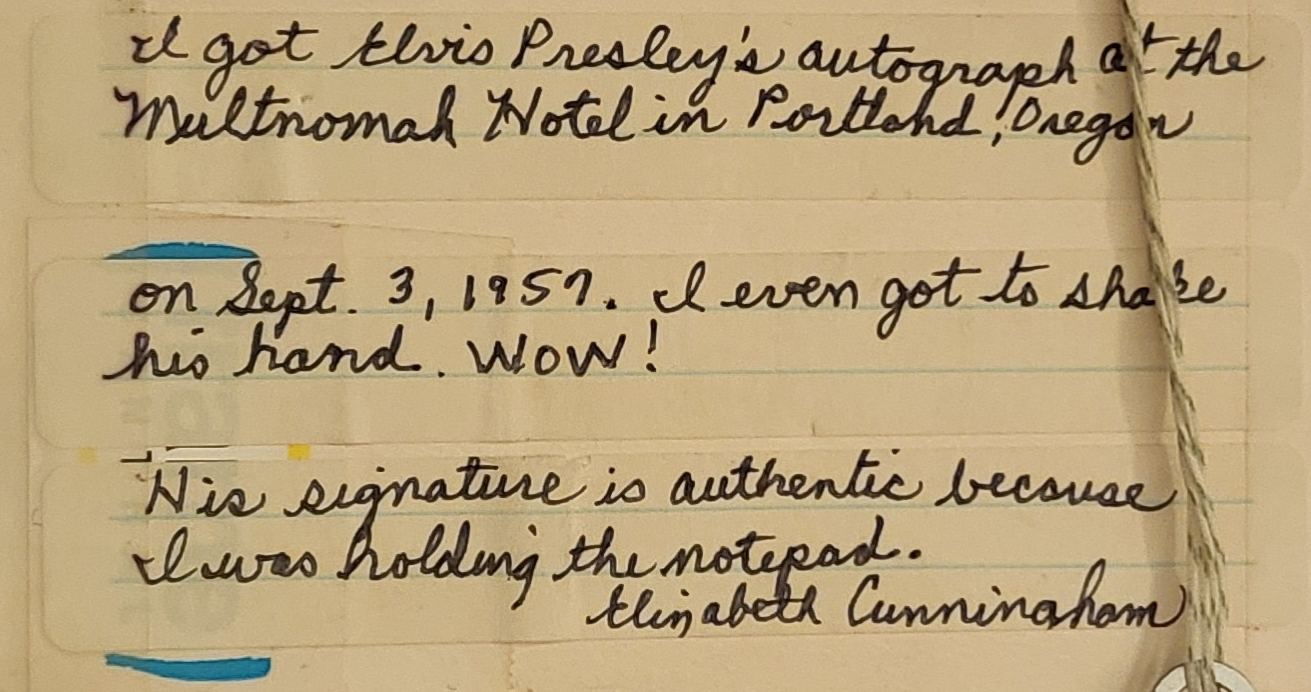 I got Elvis Presley's autograph at the
Multnomah Hotel in Portland, Oregon
on Sept. 3, 1957. I even got to shake
his hand. WOW!
His signature is authentic because
I was holding the notepad.
Elizabeth Cunningham